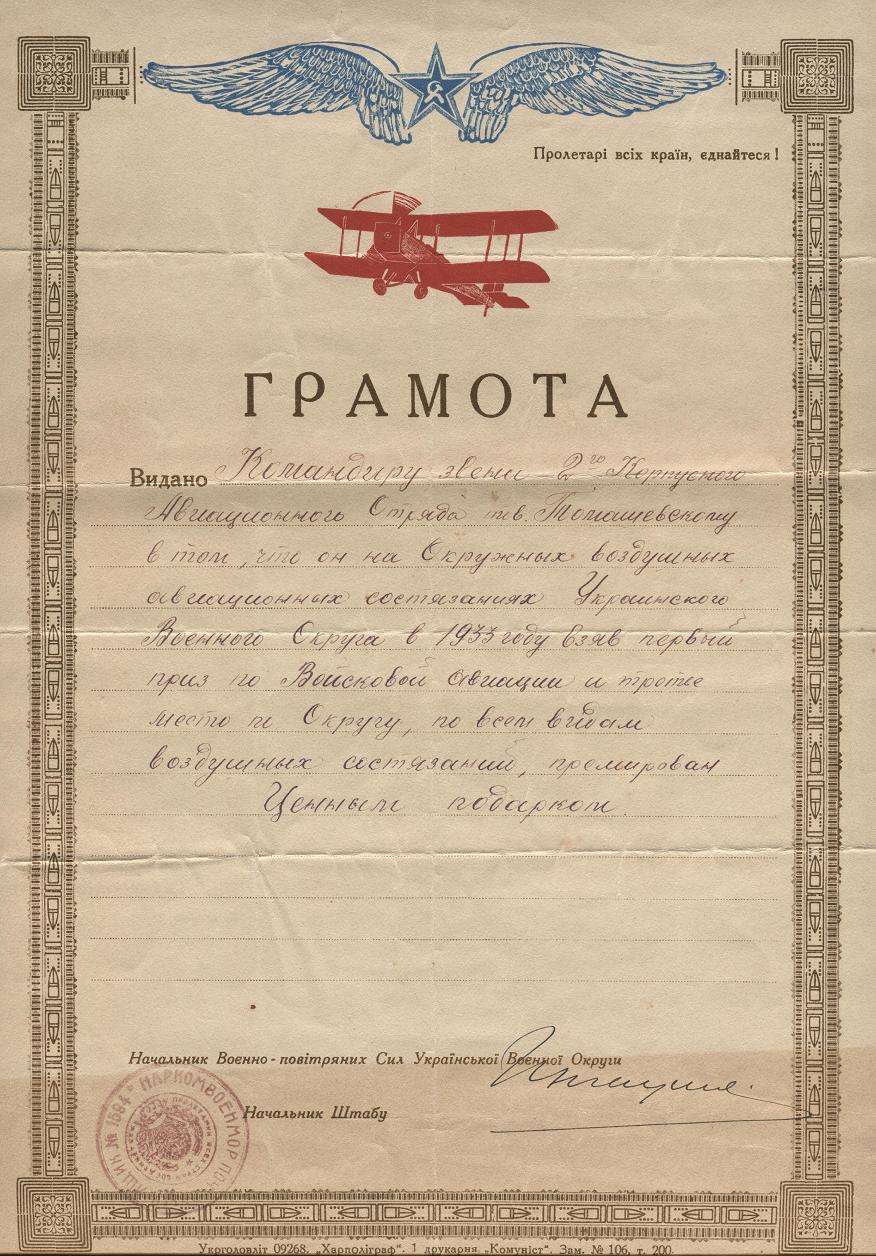 Пролетарі всіх країн, єднайтеся!
ГРАМОТА
Видано Командиру звена 2го Корпусного
Авиационного Отряда тов. Томашевскому
в том, что он на Окружных воздушных
авиационных состязаниях Украинского
Военного Округа в 1933 году взяв первый
приз по Войсковой авиации и третье
место по Округу, по всем видам
воздушных состязаний, премирован
Ценным подарком.
Начальник Воєнно-повітряних Сил Української Воєнної Округи
Начальник Штабу
НАРКОМВОЕНМОР ПО
ЯЩИК № 1684
Укрголовліт 09268. „Харполіграф". 1 друкарня „Комуніст". Зам. № 106, т. 200.